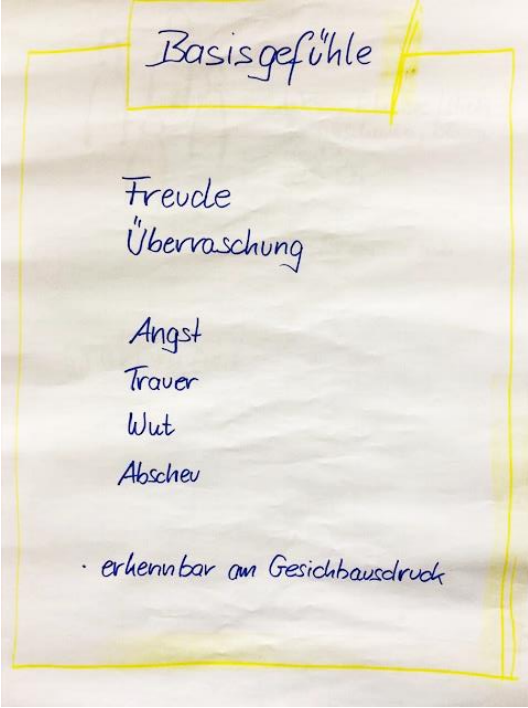 Basisgefühle
Freude
Überraschung
Angst
Trauer
Wut
Abscheu
· erkennbar am Gesichtsausdruck